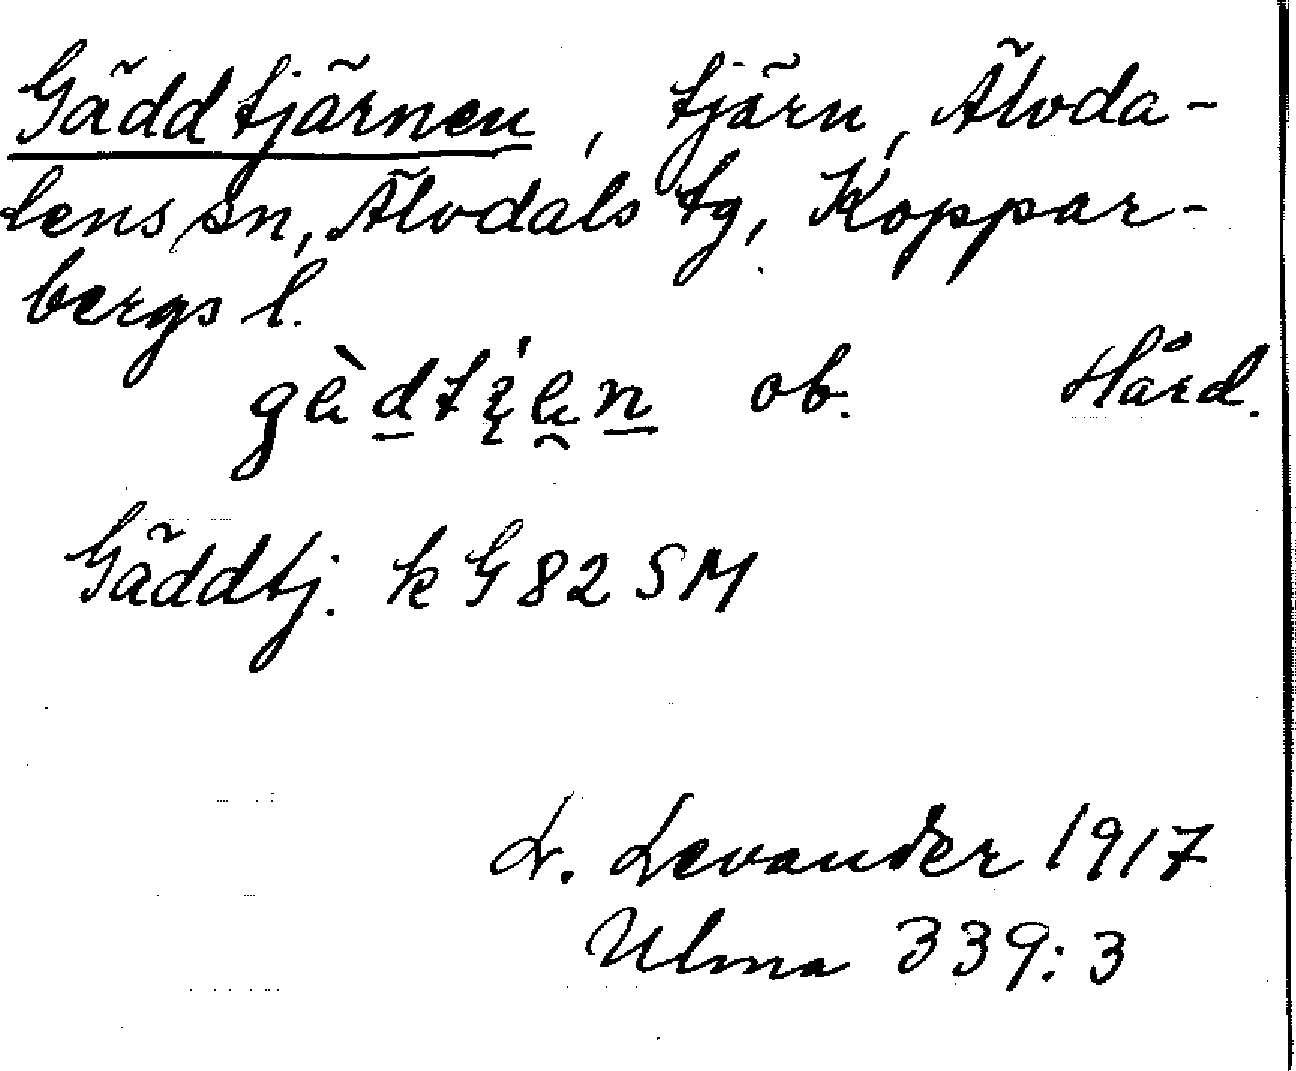 Gäddtjärnen, tjärn, Älvda-
lens sn, Älvdals tg, Koppar-
bergs l.
ob. Hård.
Gäddtj. k G 82 SM
L. Levander 1917
Ulma 339:3